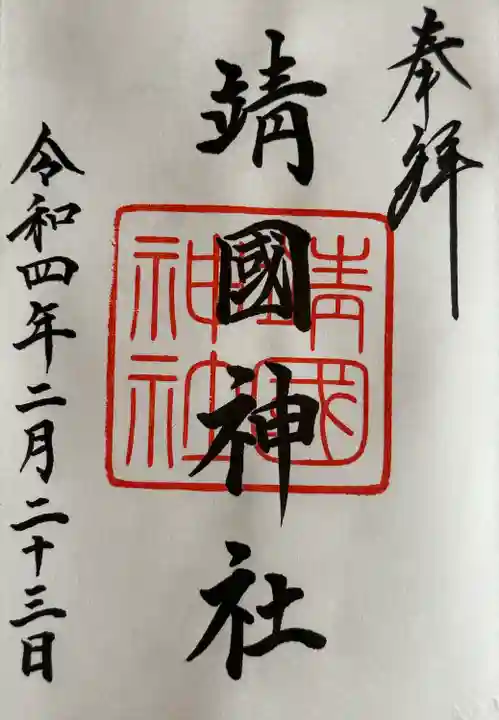 奉拝
靖國神社
靖國神社
令和四年二月二十三日